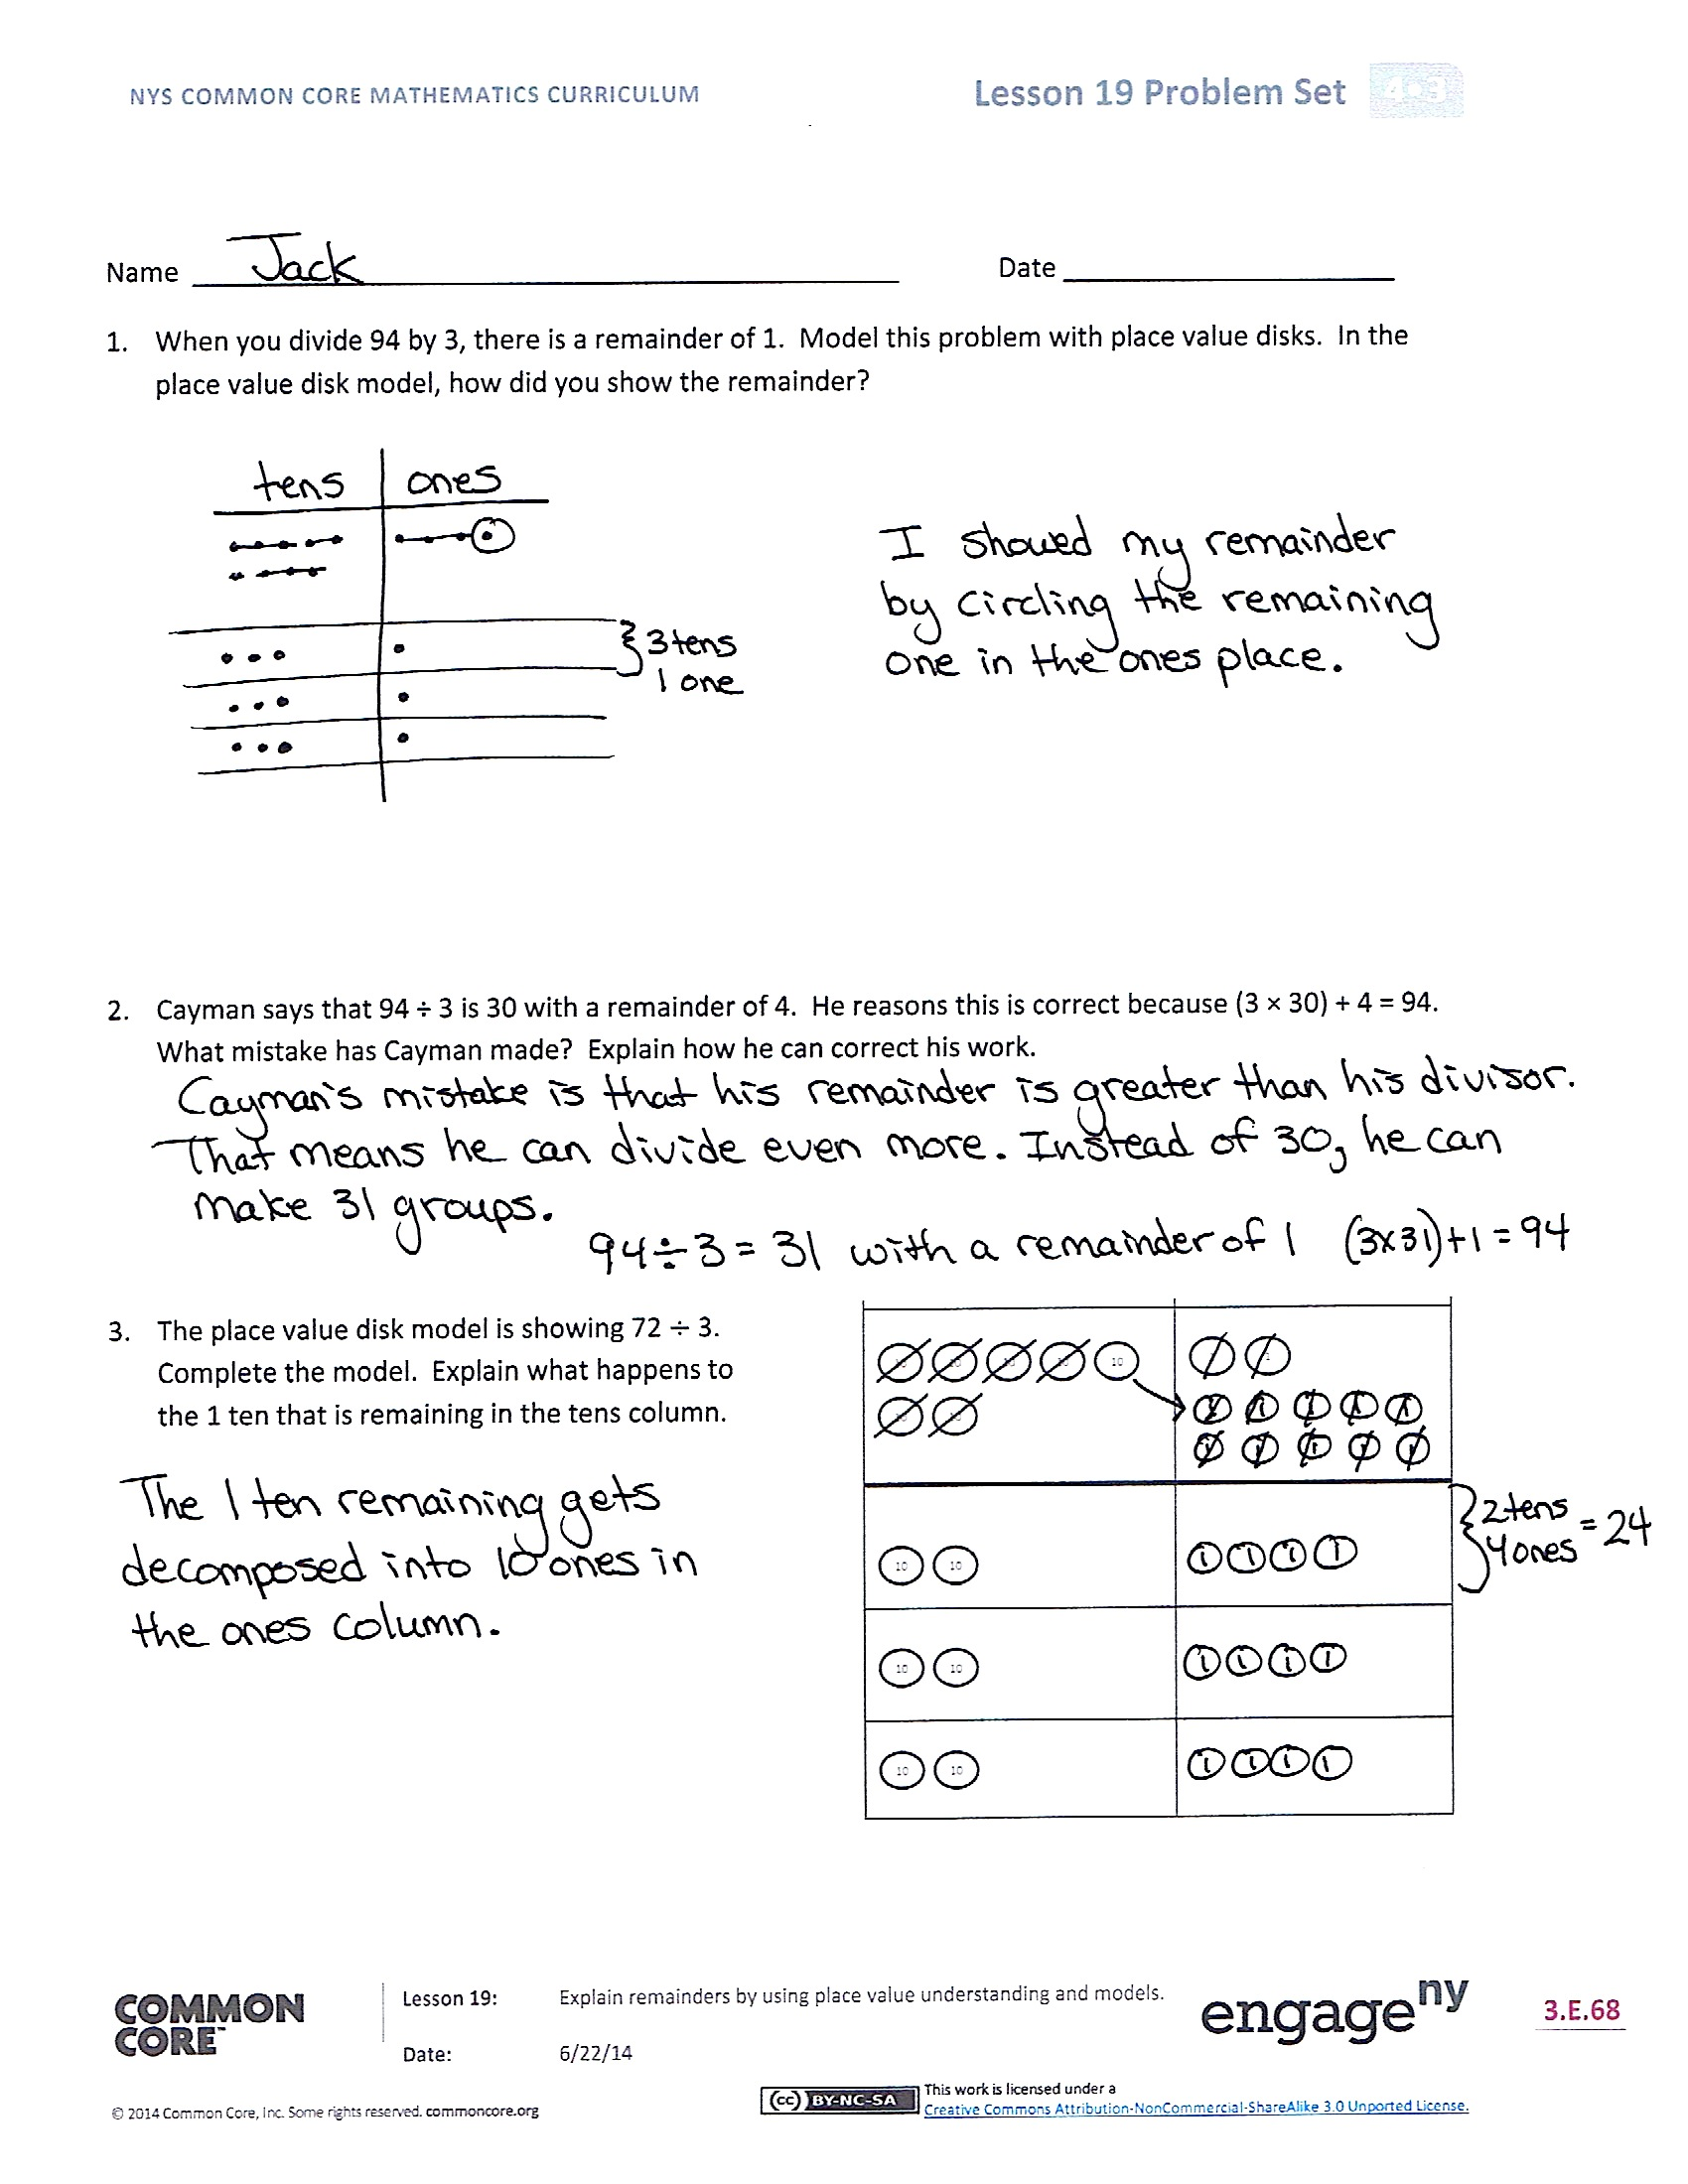 NYS COMMON CORE MATHEMATICS CURRICULUM
Lesson 19 Problem Set 4•3
Name Jack Date
1. When you divide 94 by 3, there is a remainder of 1. Model this problem with place value disks. In the
place value disk model, how did you show the remainder?
tens ones
3 tens
1 one
I showed my remainder
by circling the remaining
one in the ones place.
2. Cayman says that 94 ÷ 3 is 30 with a remainder of 4. He reasons this is correct because (3 × 30) + 4 = 94.
What mistake has Cayman made? Explain how he can correct his work.
Cayman's mistake is that his remainder is greater than his divisor.
That means he can divide even more. Instead of 30, he can
make 31 groups.
94÷3=31 with a remainder of 1 (3x31)+1=94
3. The place value disk model is showing 72 ÷ 3.
Complete the model. Explain what happens to
the 1 ten that is remaining in the tens column.
The 1 ten remaining gets
decomposed into 10 ones in
the ones column.
10
1 1 1 1 1
1 1 1 1 1
10 10 1 1 1 1
2 tens
4 ones = 24
10 10 1 1 1 1
10 10 1 1 1 1
COMMON
CORE™
Lesson 19: Explain remainders by using place value understanding and models.
Date: 6/22/14
engage ny
3.E.68
© 2014 Common Core, Inc. Some rights reserved. commoncore.org
(cc) BY-NC-SA
This work is licensed under a
Creative Commons Attribution-NonCommercial-ShareAlike 3.0 Unported License.